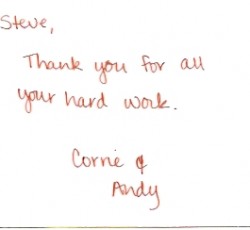 Steve,
Thank you for all
your hard work.
Corrie &
Andy